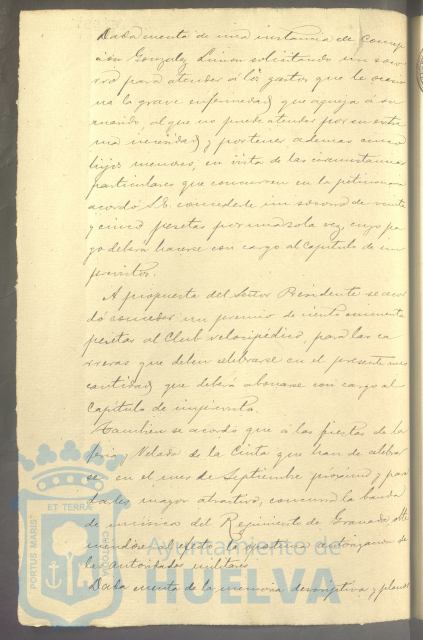 Dada cuenta de una instancia de Concep
ción Gonzalez Limon solicitando un soco
rro para atender á los gastos que le ocasio
na la grave enfermedad que aqueja á su
marido, al que no puede atender por su extre
ma necesidad y por tener ademas cinco
hijos menores, en vista de las circunstancias
particulares que concurren en la peticionaria
acordó S.E. concederle un socorro de veinte
y cinco pesetas por una sola vez, cuyo pa
go deberá hacerse con cargo al Capitulo de im
previstos.
A propuesta del Señor Presidente se acor
dó conceder un premio de ciento cincuenta
pesetas al Club velocipédico, para las ca
rreras que deben celebrarse en el presente mes
cantidad que deberá abonarse con cargo al
Capitulo de imprevistos.
Tambien se acordó que á las fiestas de la
feria y Velada de la Cinta que han de celebrar
se en el mes de Septiembre próximo y para
darles mayor atractivo, concurra la banda
de música del Regimiento de Granada obte
niendose al efecto la oportuna autorizacion de
la autoridad militar.
Dada cuenta de la memoria descriptiva y planos
PORTUS MARIS ET TERRAE CUSTODIA
Ayuntamiento de
HUELVA